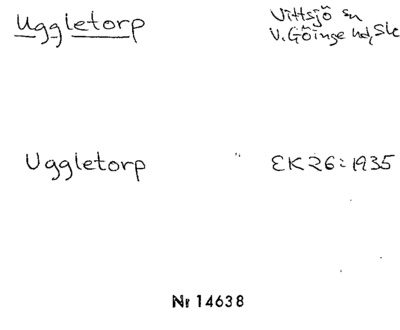 Uggletorp
Vittsjö sn
V. Göinge hd, Sk
Uggletorp
EK 26: 1935
Nr 14638